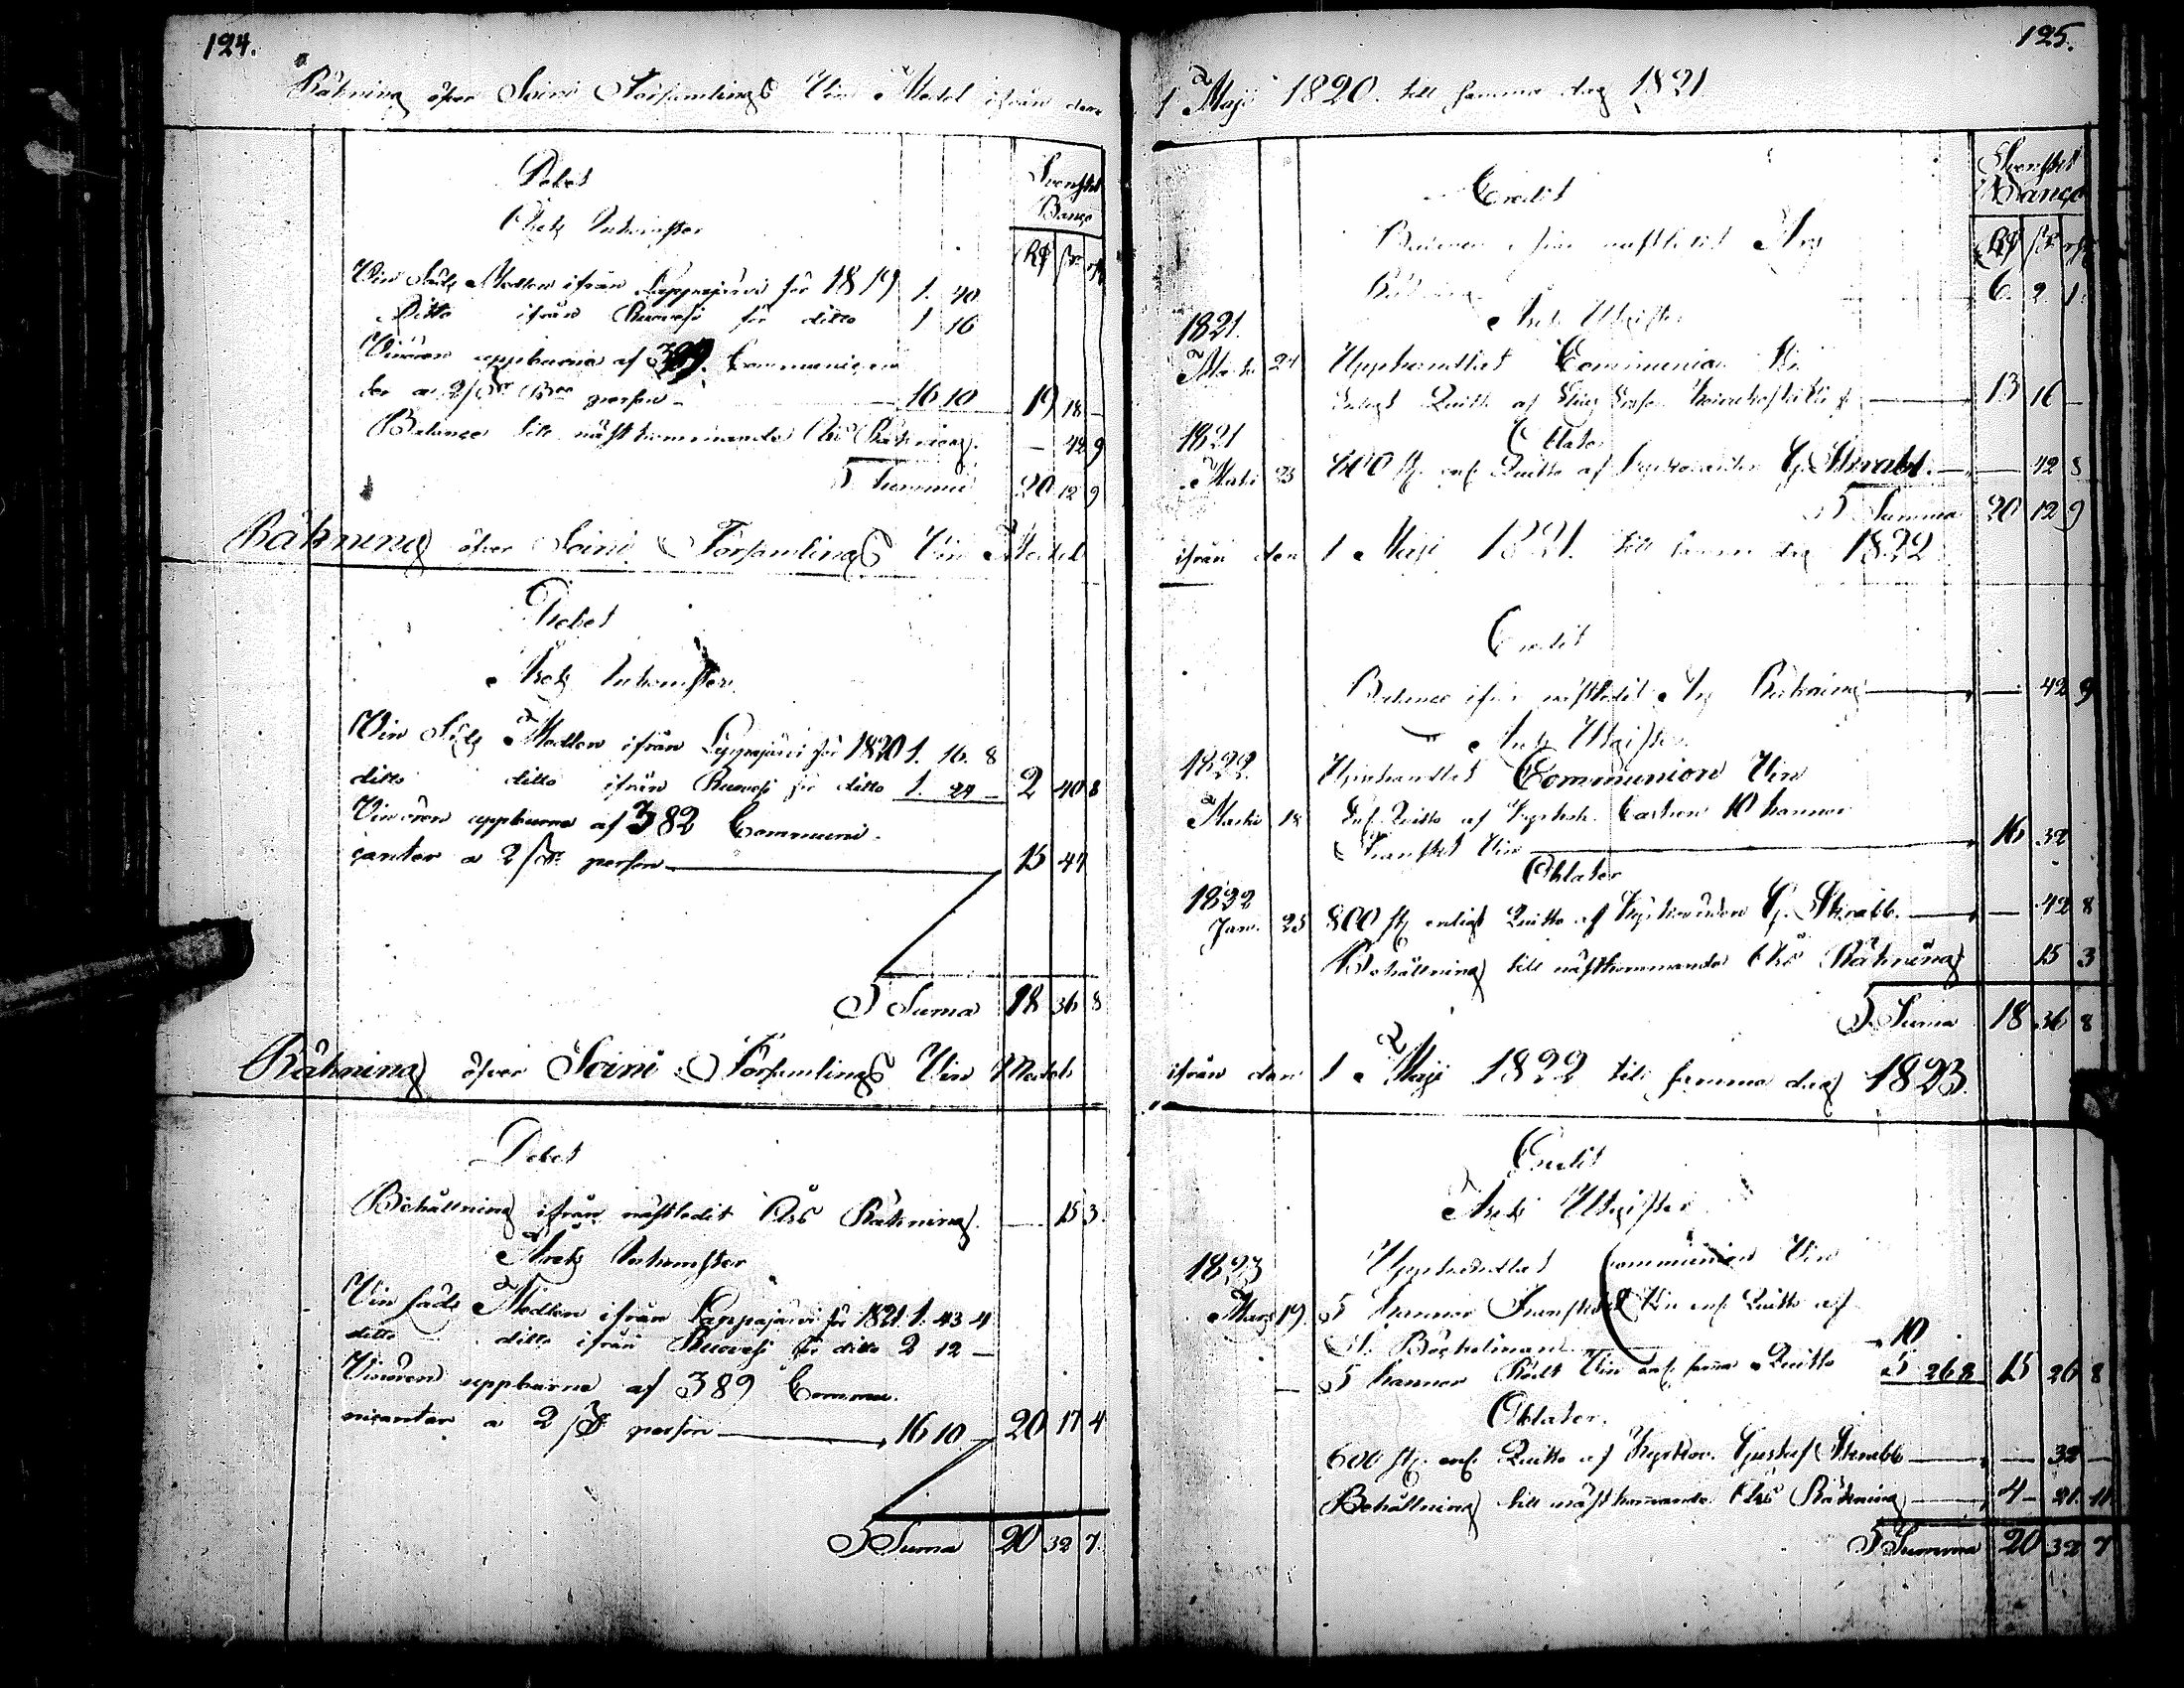 124.
Räkning öfver Soini Församlings Vin Medel ifrån den
Debet
Svenskt
Banco
Årets Inkomster
Rd sk rst
Vin Säds Medlen ifrån Lappajärvi för 1819 1. 40.
Ditto ifrån Ruovesi för ditto 1 16
Vinören uppburne af 389. Communican
ter a 2 sk Bco person 16 10 19 18 -
Balance till nästkommande Års Räkning. - 42 9
Summa 20 12 9
Räkning öfver Soini Församlings Vin Medel
Debet
Årets Inkomster
Vin Säds Medlen ifrån Lappajärvi för 1820 1. 16. 8
ditto ditto ifrån Ruovesi för ditto 1. 24 - 2 40 8
Vinören uppburne af 382 Communi-
canter a 2 sk person 15 44
Suma 18 36 8
Räkning öfver Soini Församlings Vin Medel
Debet
Behållning ifrån nästledit Års Räkning. - 15 3.
Årets Inkomster
Vin säds Medlen ifrån Lappajärvi för 1821 1. 43 4
ditto ditto ifrån Ruovesi för ditto 2 12 -
Vinören uppburne af 389 Commu-
nicanter a 2 sk person 16 10 - 20 17 4
Suma 20 32 7.
125.
1 Maji 1820. till samma dag 1821
Credit
Svenskt
Banco
Balance ifrån nästledit Års
Rd sk rst
Räkning 6. 2. 1.
1821. Årets Utgifter
Martii 24 Upphandlat Communion Vin
Enligt Quitto af 13 16 -
1821 Oblater
Martii 23 800 st. enl. Quitto af Kyrkovärden G. Skrabb - 42 8
Summa 20 12 9
ifrån den 1 Maji 1821. till samma dag 1822
Credit
Balance ifrån nästledit Års Räkning - 42 9
Årets Utgifter
1822. Upphandlat Communion Vin
Martii 18 Enl. Quitto af Castren 10 kannor
Franskt Vin 16 32
Oblater
1822
Jan. 25 800 st. enligt Quitto af Kyrkovärden G. Skrabb. - 42 8
Behållning till nästkommande Års Räkning 15 3
Suma 18 36 8
ifrån den 1 Maji 1822 till samma dag 1823.
Credit
Årets Utgifter
1823 Upphandlat Communion Vin
Mars 19. 5 kannor Franskt Vin enl. Quitto af
Böckelman 10
5 kannor Rödt Vin enl. sama Quitto 5 26 8 15 26 8
Oblater.
600 st. enl. Quitto af Kyrkov. Gustaf Skrabb - 32 -
Behållning till nästkommande Års Räkning 4 - 21. 11
Summa 20 32 7